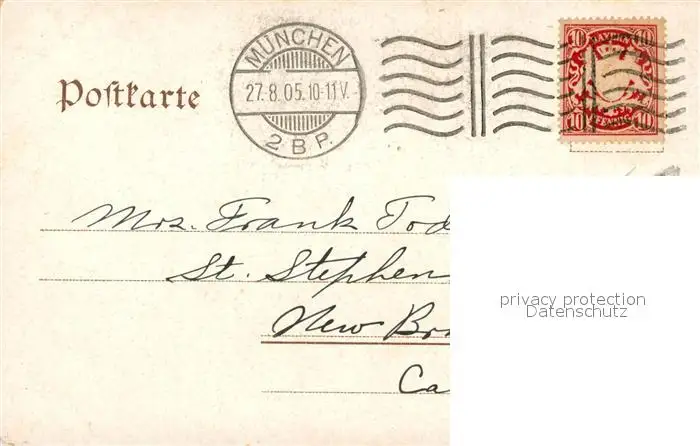 MÜNCHEN
27.8.05.10-11V.
2 B.P.
10 BAYERN 10
10 PFENNIG 10
Postkarte
Mrs. Frank Tod
St. Stephen
New Br
Ca
privacy protection
Datenschutz